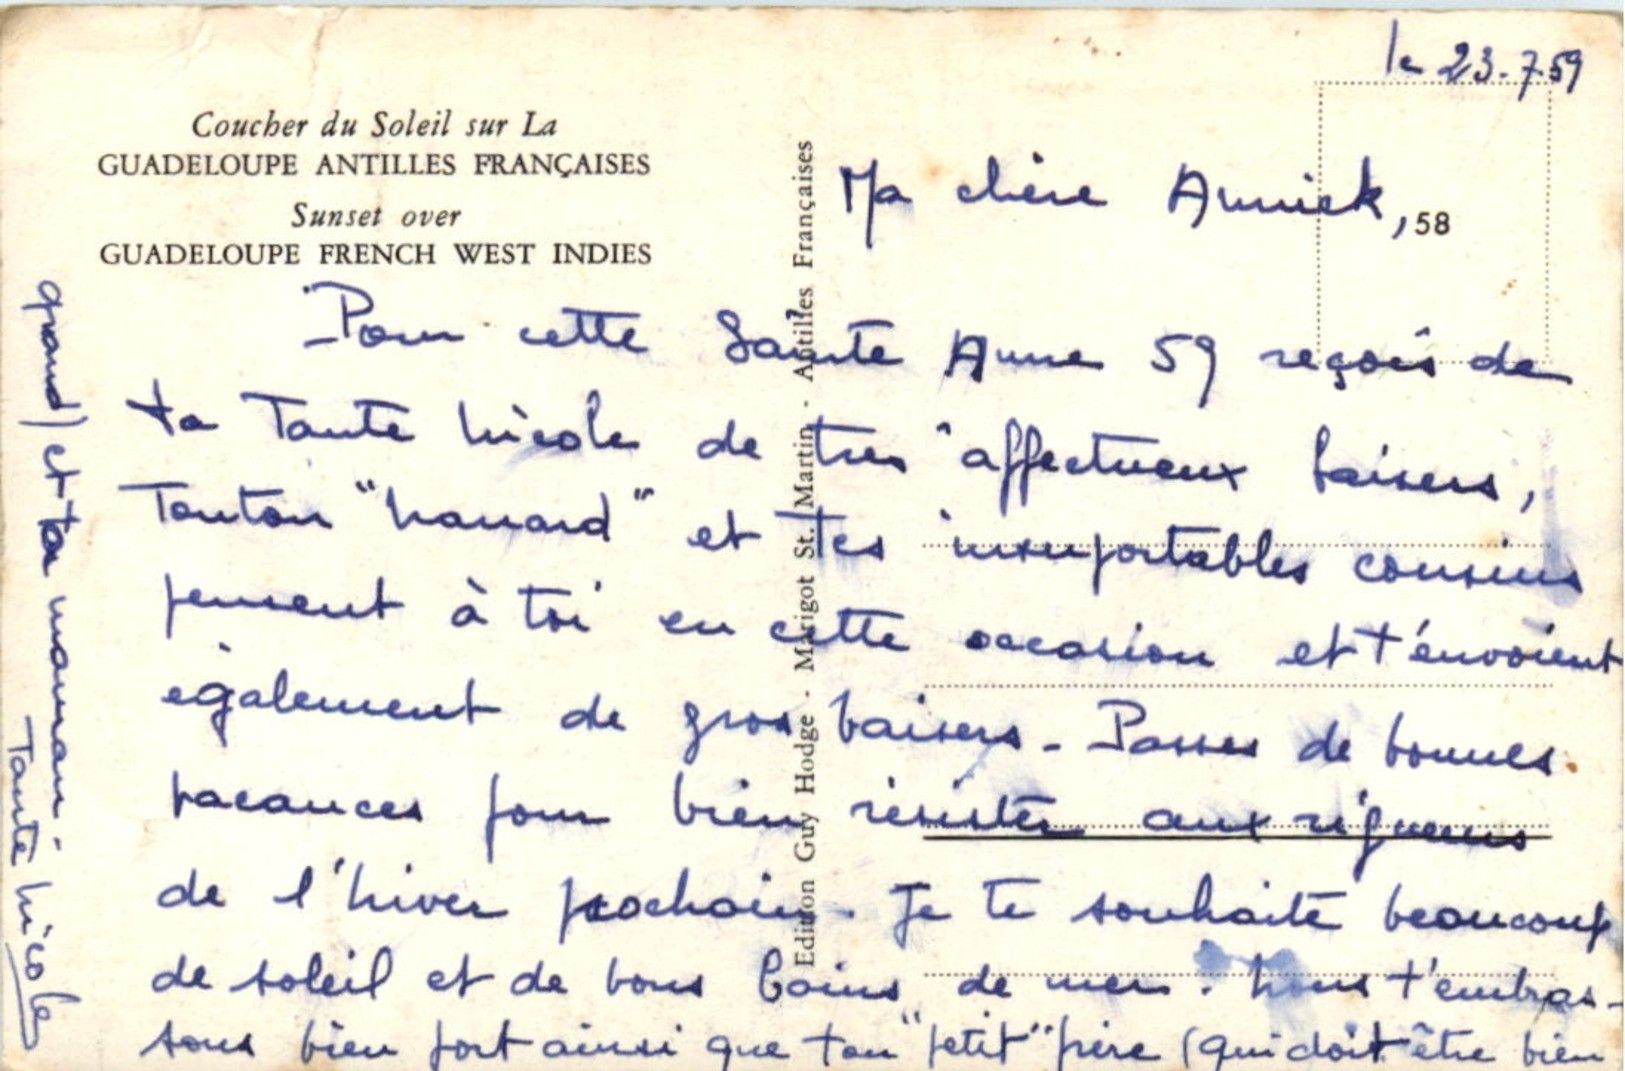 le 23.7.59
Coucher du Soleil sur La
GUADELOUPE ANTILLES FRANÇAISES
Sunset over
GUADELOUPE FRENCH WEST INDIES
Edition Guy Hodge - Marigot St. Martin - Antilles Françaises
58
Ma chère Annick,
Pour cette Sainte Anne 59 reçois de
ta Tante Nicole de très affectueux baisers,
Tonton "Nanard" et tes insuportables cousins
pensent à toi en cette occasion et t'envoient
également de gros baisers - Passes de bonnes
vacances pour bien résister aux rigueurs
de l'hiver prochain. Je te souhaite beaucoup
de soleil et de bons bains de mer. Nous t'embras-
sons bien fort ainsi que ton "petit" frère (qui doit être bien
grand) et ta maman.
Tante Nicole